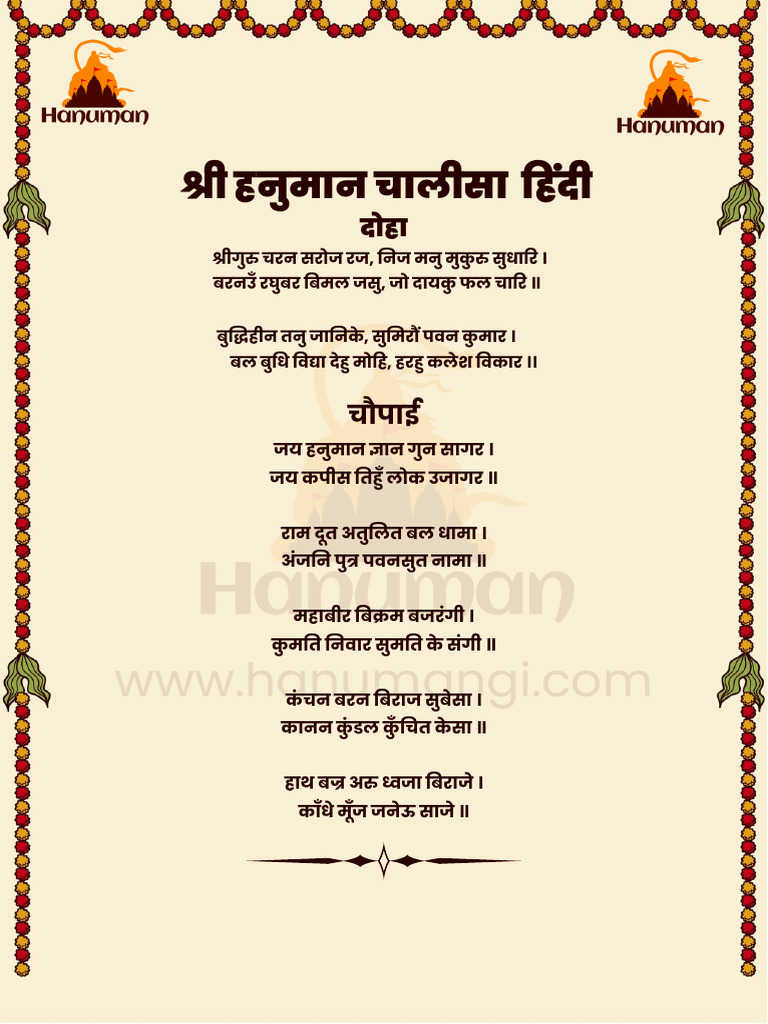 Hanuman
Hanuman
श्री हनुमान चालीसा हिंदी
दोहा
श्रीगुरु चरन सरोज रज, निज मनु मुकुरु सुधारि ।
बरनउँ रघुबर बिमल जसु, जो दायकु फल चारि ॥
बुद्धिहीन तनु जानिके, सुमिरौं पवन कुमार ।
बल बुधि विद्या देहु मोहि, हरहु कलेश विकार ।।
चौपाई
जय हनुमान ज्ञान गुन सागर ।
जय कपीस तिहुँ लोक उजागर ॥
राम दूत अतुलित बल धामा ।
अंजनि पुत्र पवनसुत नामा ॥
Hanuman
महाबीर बिक्रम बजरंगी ।
कुमति निवार सुमति के संगी ॥
www.hanumangi.com
कंचन बरन बिराज सुबेसा ।
कानन कुंडल कुँचित केसा ॥
हाथ बज्र अरु ध्वजा बिराजे ।
काँधे मूँज जनेऊ साजे ॥